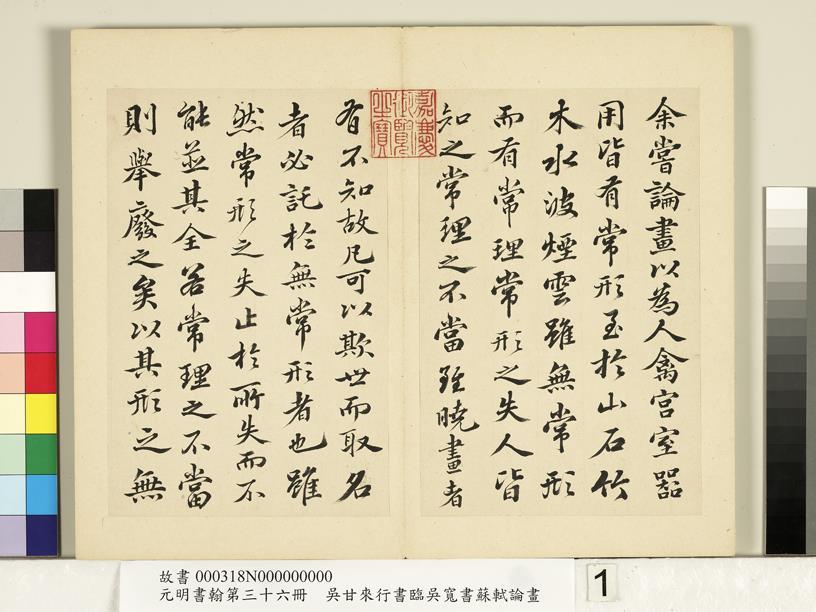 余嘗論畫以為人禽宮室器
用皆有常形至於山石竹
木水波煙雲雖無常形
而有常理常形之失人皆
知之常理之不當雖曉畫者
有不知故凡可以欺世而取名
者必託於無常形者也雖
然常形之失止於所失而不
能並其全若常理之不當
則舉廢之矣以其形之無
嘉慶
御覽
之寶
故書 000318N000000000
元明書翰第三十六冊 吳甘來行書臨吳寬書蘇軾論畫
1